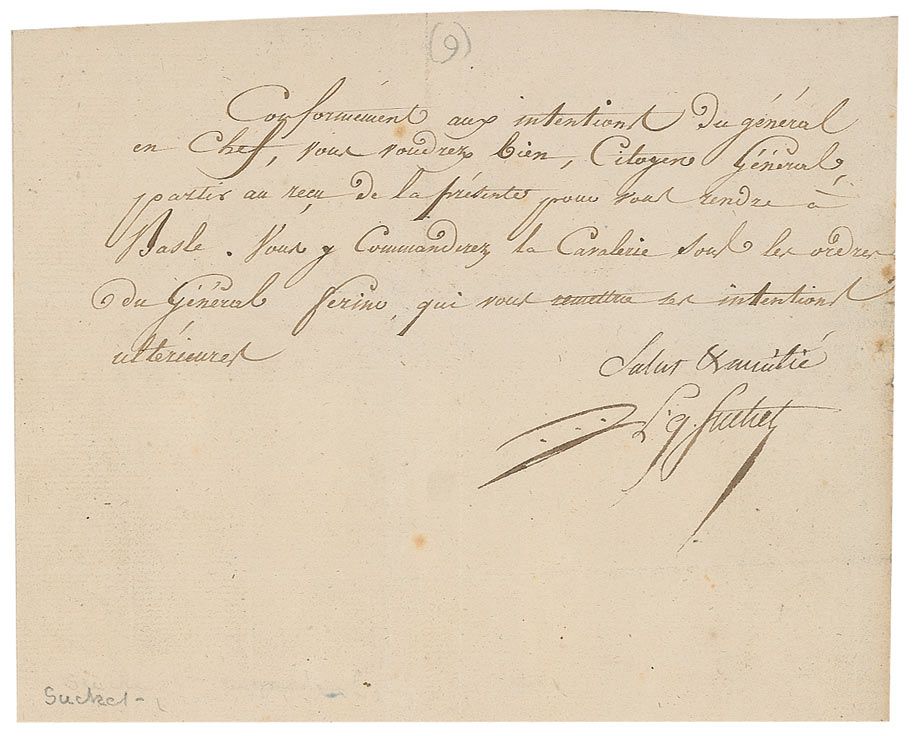 (9)
Conformément aux intentions du général
en Chef, vous voudrez bien, Citoyen Général,
partir au reçu de la présente pour vous rendre à
Basle. Vous y Commanderez la Cavalerie sous les ordres
du Général ferino, qui vous remettra ses intentions
ultérieures
Salut & amitié
L. g. Suchet
Suchet -